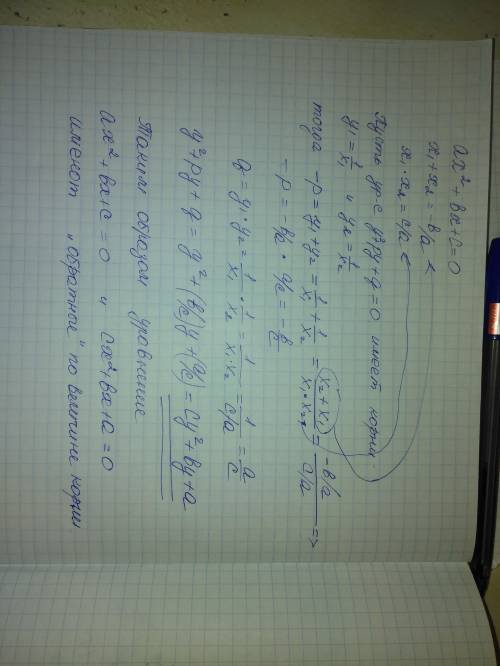 ax² + вx + c = 0
x₁ + x₂ = -в/a
x₁ · x₂ = c/a
Пусть ур-е y² + py + q = 0 имеет корни:
y₁ = 1/x₁ и y₂ = 1/x₂
тогда -p = y₁ + y₂ = 1/x₁ + 1/x₂ = (x₂ + x₁)/(x₁ · x₂) = (-в/a)/(c/a) =>
-p = -в/a · a/c = -в/c
q = y₁ · y₂ = 1/x₁ · 1/x₂ = 1/(x₁ · x₂) = 1/(c/a) = a/c
y² + py + q = y² + (в/c)y + (a/c) = cy² + вy + a
Таким образом уравнение
ax² + вx + c = 0 и cx² + вx + a = 0
имеют "обратные" по величине корни